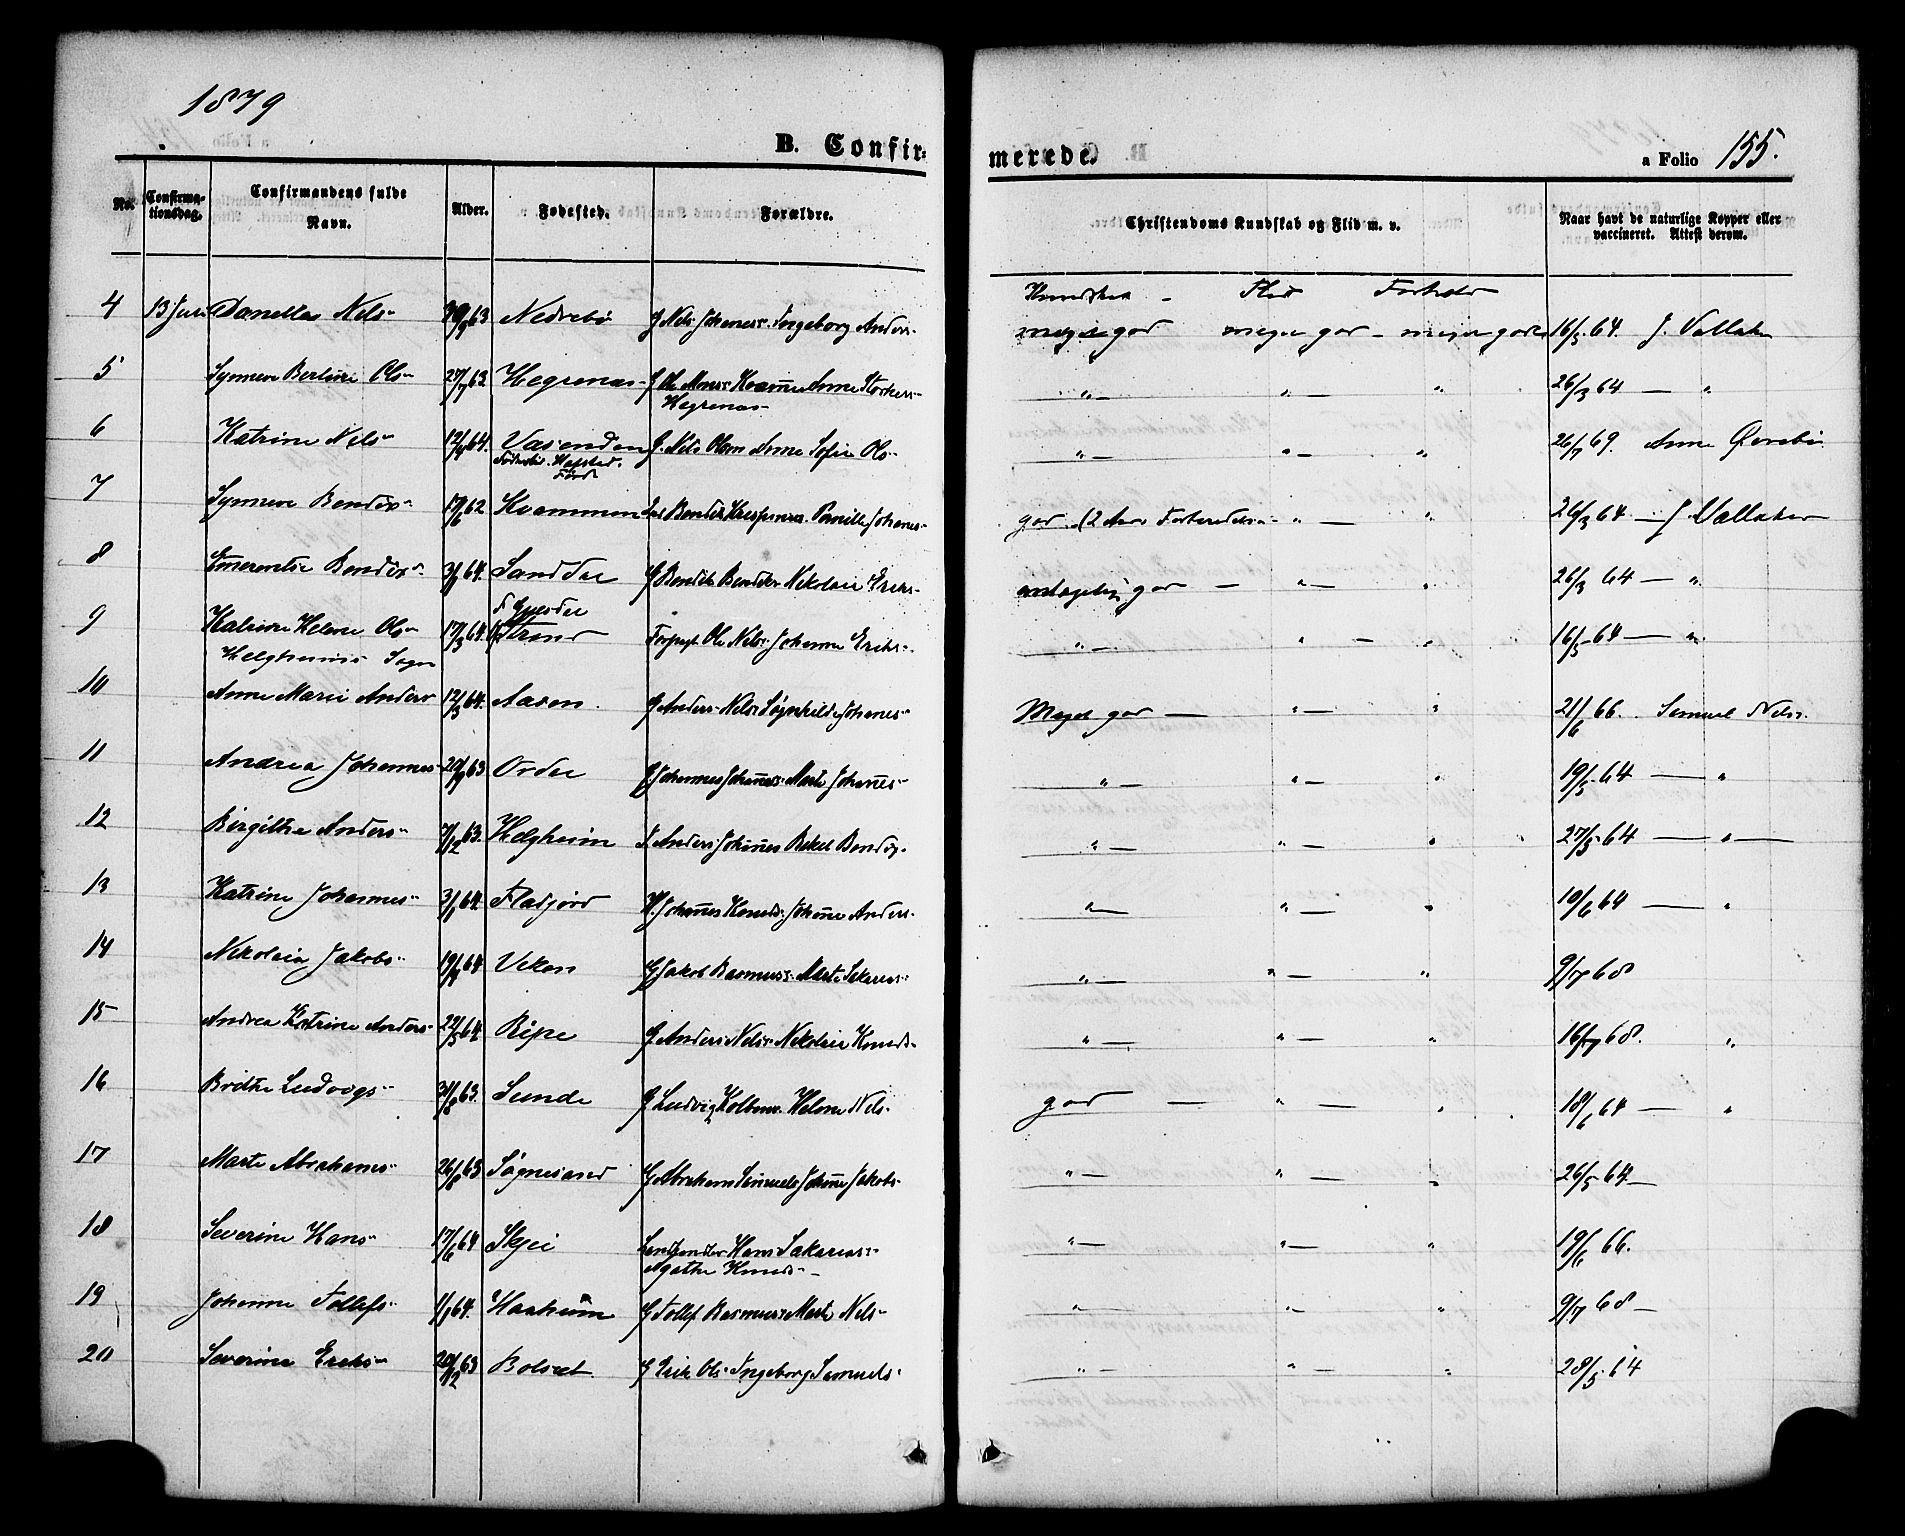 1879
B. Confirmerede. a Folio 155.
No. Confirmationsdag. Confirmandens fulde Navn. Alder. Fødested. Forældre. Christendoms Kundskab og Flid m. v. Naar havt de naturlige Kopper eller vaccineret. Attest derom.
Kundskab - Flid Forhold
4 13 Juli Danella Nels- 63 Nedrebø G Nels Johaness- Ingeborg Anders- meget god meget god - meget godt 16/5 64. J. Vallaker
5 Synneve Berline Ols- 27/7 63 Hegrenæs- Mons- Anne
Hegrenæs- " " " 26/3 64 — "
6 Katrine Nels- 12/4 64. Vasenden G. Nels Olsen Anne Sofie Ols- " " " 26/7 69. Anne Øvrebø
Hafstad
Førde
7 Synneve Bendix- 17/6 62 Kvammen Bendix Pernille Johanes- god (2 " — " 26/3 64 — J Vallaker
8 Emerentse Bendix- 3/1 64. Sanddal G Bendik Bendiks- Nikolaie Eriks- god — " — " 26/3 64 — "
9 Katrine Helene Ols- 17/3 64. Strand Ole Nels- Johanne Eriks- " — " — " 16/5 64 — "
Helgheims Sogn
10 Anne Marie Anders- 12/3 64. Aasen G Anders Nels- Søgnhild Johanes- Meget god — " — " 21/6 66. Samuel Nels-
11 Andrea Johannes- 63 Ordal G Johannes Johanes- Marte Johanes- " — " — " 19/5 64 — "
12 Birgitha Anders- 7/12 63. Helgheim Anders Johanes Rakel Bendix- " — " — " 27/5 64 — " —
13 Katrine Johannes- 3/1 64. Flatjord H. Johanes Knuds- Johane Anders- " — " — " 10/6 64 — "
14 Nikolaia Jakobs- 64 Viken G Jakob Rasmus- Marte Sakarias- " — " — " 9/7 68
15 Andrea Katrine Anders- 22/3 64. Ripe G Anders Nels- Nikolaie Knuds- " — " — " 16/7 68. "
16 Brithe Ludvigs- 31/8 63. Sunde G Ludvig Kolbens- Helene Nels- god — " — " 18/6 64 — "
17 Marte Abrahams- 26/8 63 Søgnesand G Abraham Samuels- Johane Jakobs- " — " — " 26/5 64 —
18 Severine Hans- 17/6 64 Skjei Hans Sakarias-
Agathe Knuds- " — " — " 19/6 66.
19 Johanne Tollefs- 1/1 64. Haaheim G Tollef Rasmus- Marte Nels- " " — " 9/7 68 —
20 Severine Eriks- 20/12 63 Bolsæt G Erik Ols- Ingeborg Samuels- " — " — " 28/5 64